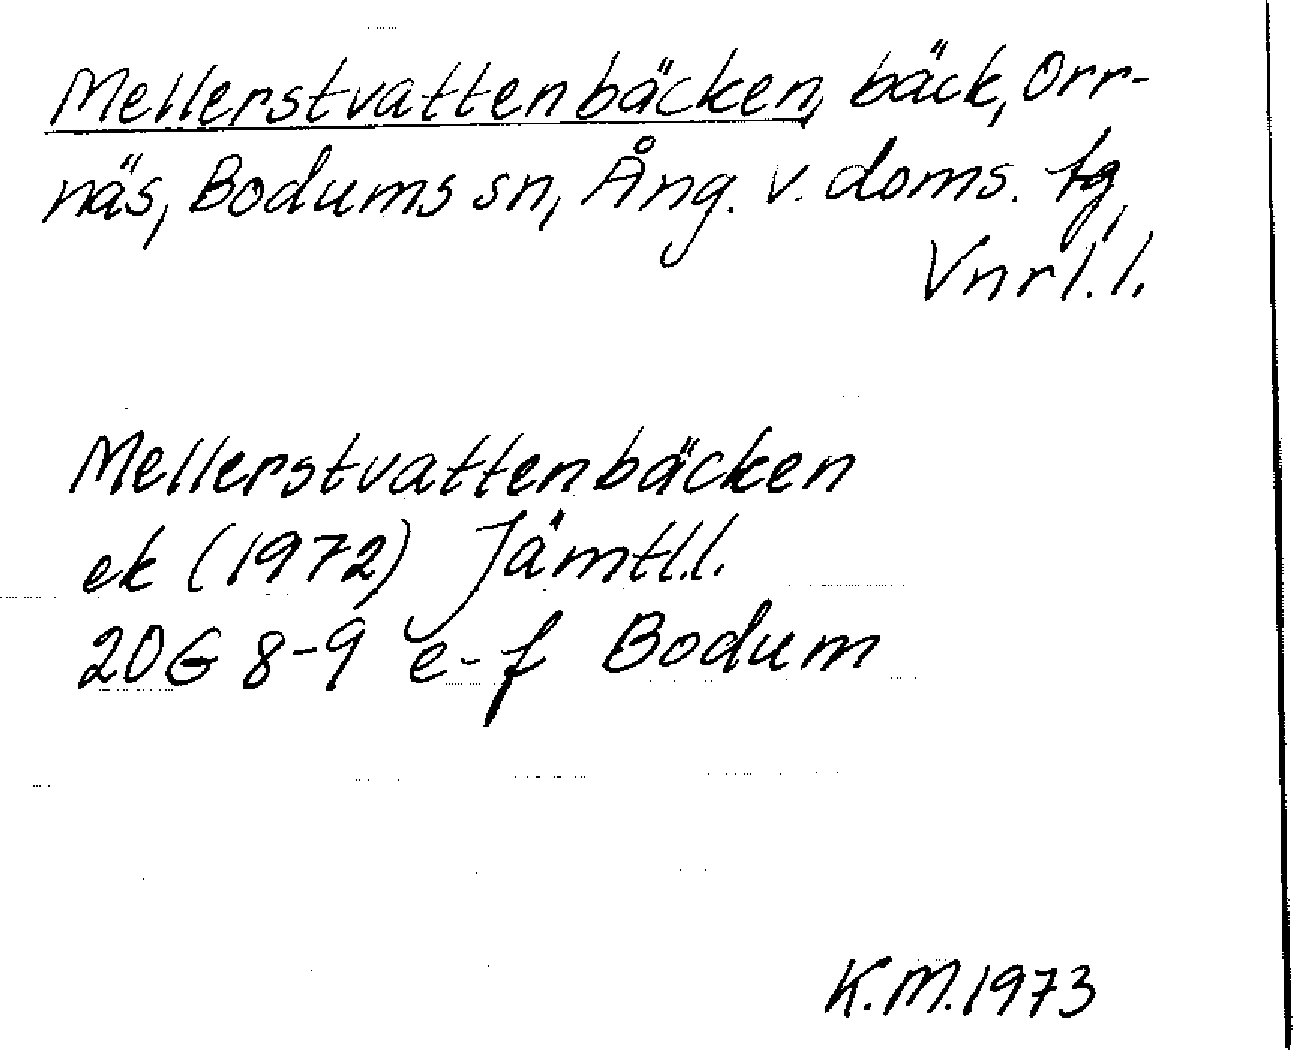 Mellerstvattenbäcken, bäck, Orr-
näs, Bodums sn, Ång. v. doms. tg,
Vnrl.l.
Mellerstvattenbäcken
ek (1972) Jämtl.l.
20G 8-9 e-f Bodum
K.M.1973